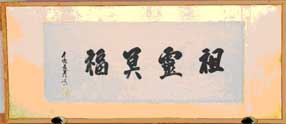 祖靈冥福